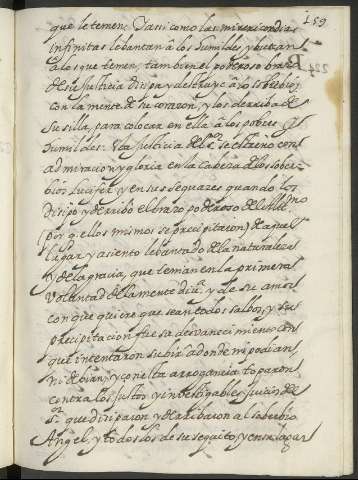 159
que le temen. Y assi como las misericordias
infinitas lebantan â los humildes y buscan
a los que temen, tambien el poderoso braço
de su justicia disipa y destruye â los soberbios
con la mente de su corazon, y los derriba de
su silla, para colocar en ella â los pobres y
humildes. Esta justicia del Sr. se estreno con
admiracion y gloria en la cabeza de los sober-
bios lucifer y en sus sequazes quando los
disipo y derribo el brazo poderoso del Altmo
(por q. ellos mismos se precipitaron) de aquel
lugar y asiento lebantado de la naturaleza
y de la gracia, que tenian en la primera
Voluntad de la mente divª. y de su amor
con que quiere que sean todos salbos, y su
precipitacion fue su desvanecimiento con
que intentaron subir â donde ni podian,
ni debian; y con esta arrogancia toparon
contra los justos y inbestigables juicios de
Sr. que disiparon y derribaron al soberbio
Angel, y todos los de su sequito, y en su lugar